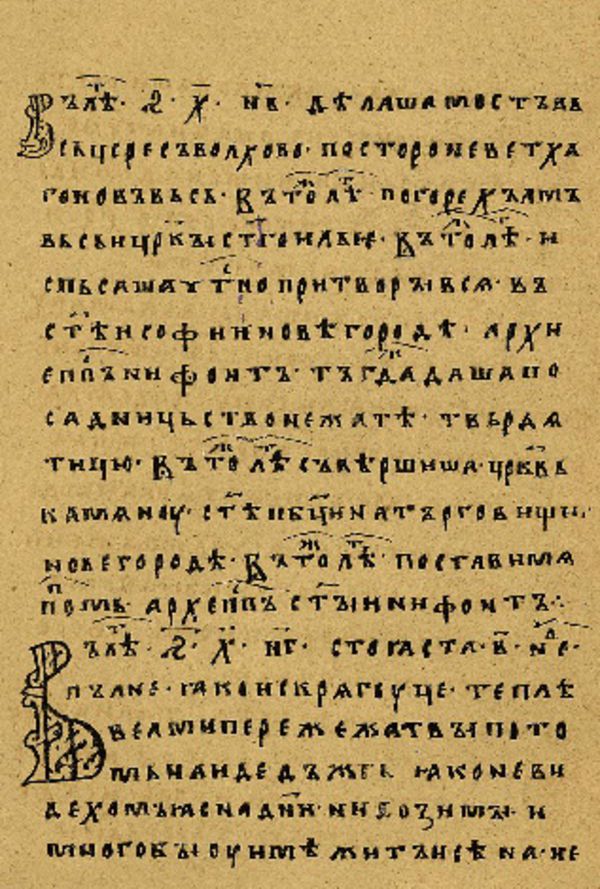 Въ лѣ҇т · ҂ѕ · х҃ · н҃в · дѣлаша мостъ вь
сь цересъ волхово · по стороне ветха
го новъ вьсь · Въ тоⷤ лѣⷮ погоре хълмъ
вьсь и цр҃кꙑ ст҃го ильѥ · Въ тоⷤ лѣⷮ · и
спьсаша ут҇но притворꙑ всѧ · въ
ст҃ѣи софии новѣгородѣ · архи
еп҃пъ нифонтъ · тъгда даша по
садницьство нежатѣ · твьрдѧ
тицю · Въ тоⷤ лѣⷮ съвьршиша цр҃квь
камѧноу · ст҃ѣ б҃ци на търговищи ·
новегородѣ · Въ тоⷤ лѣⷮ · постави мѧ
попⷨь · археп҃пъ ст҃ꙑи нифонтъ ⁘
Въ лѣⷮ · ҂ѕ · х҃ · н҃г · стоꙗста · в҃ · неⷣ ·
пълне · ꙗко искрѧ гоуце · теплѣ
велми переже жатвꙑ · пото
мь наиде дъжгь ꙗко не ви
дехомъ ꙗсна дн҃и · ни до зимꙑ · и
много бꙑ оуимѣ житъ и сѣна · не